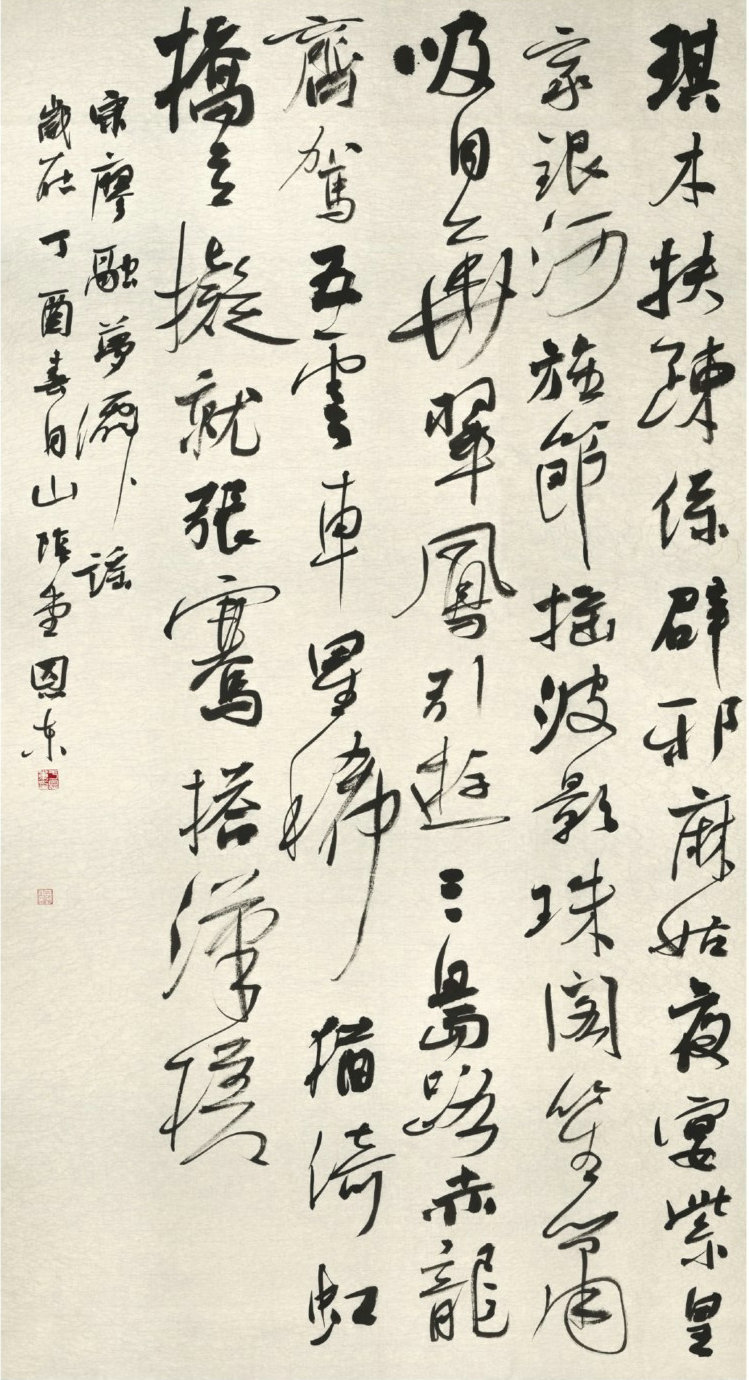 琪木扶疎係辟邪麻姑夜宴紫皇
家銀河旌節搖波影珠閣笙簫
吸月華翠鳳引遊三島路赤龍
齊駕五雲車星稀猶倚虹
橋立擬就張騫搭漢槎
宋廖融夢仙謠
歲在丁酉春日山陰堂恩東